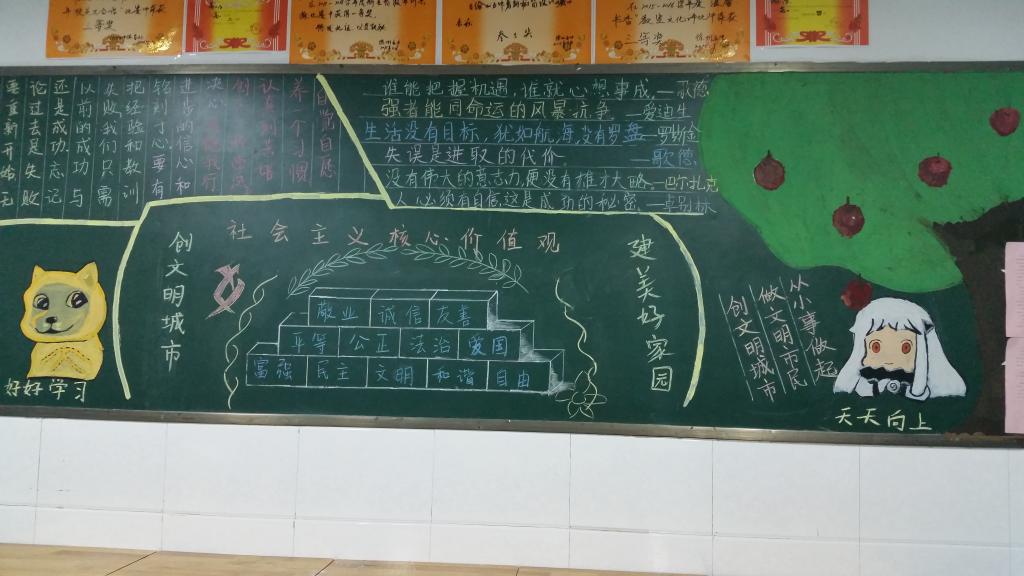 二等奖
三等奖
要重新开始无
论过去是失败
还是成功.忘记
以前的成功与
失败我们只需
把经验和教训
铭刻于心要有
进步的信心和
决心
养个习惯
自觉自愿
谁能把握机遇,谁就心想事成—歌德
强者能同命运的风暴抗争—爱迪生
生活没有目标,犹如航海没有罗盘—罗斯金
失误是进取的代价—歌德
没有伟大的意志力便没有雄才大略—巴尔扎克
人必须有自信这是成功的秘密—卓别林
社会主义核心价值观
创文明城市
敬业 诚信 友善
平等 公正 法治 爱国
富强 民主 文明 和谐 自由
建美好家园
好好学习
从小事做起
做文明市民
创文明城市
天天向上